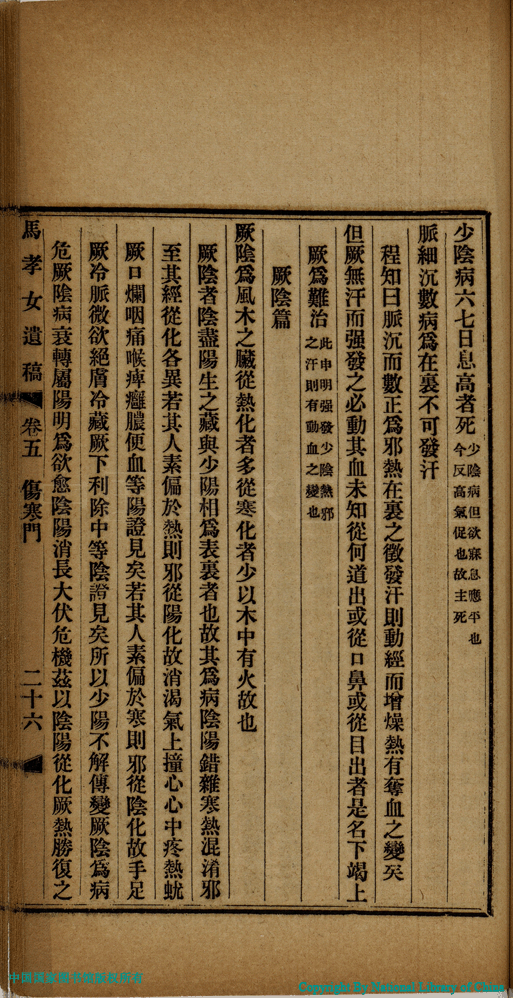 少陰病六七日息高者死少陰病但欲寐息應平也今反高氣促也故主死
脈細沉數病爲在裏不可發汗
程知曰脈沉而數正爲邪熱在裏之徵發汗則動經而增燥熱有奪血之變矣
但厥無汗而强發之必動其血未知從何道出或從口鼻或從目出者是名下竭上
厥爲難治此申明强發少陰熱邪之汗則有動血之變也
厥陰篇
厥陰爲風木之臟從熱化者多從寒化者少以木中有火故也
厥陰者陰盡陽生之藏與少陽相爲表裏者也故其爲病陰陽錯雜寒熱混淆邪
至其經從化各異若其人素偏於熱則邪從陽化故消渴氣上撞心心中疼熱蚘
厥口爛咽痛喉痺癰膿便血等陽證見矣若其人素偏於寒則邪從陰化故手足
厥冷脈微欲絕膚冷藏厥下利除中等陰證見矣所以少陽不解傳變厥陰爲病
危厥陰病衰轉屬陽明爲欲愈陰陽消長大伏危機茲以陰陽從化厥熱勝復之
馬孝女遺稿 卷五 傷寒門 二十六
中国国家图书馆版权所有
Copyright By National Library of China